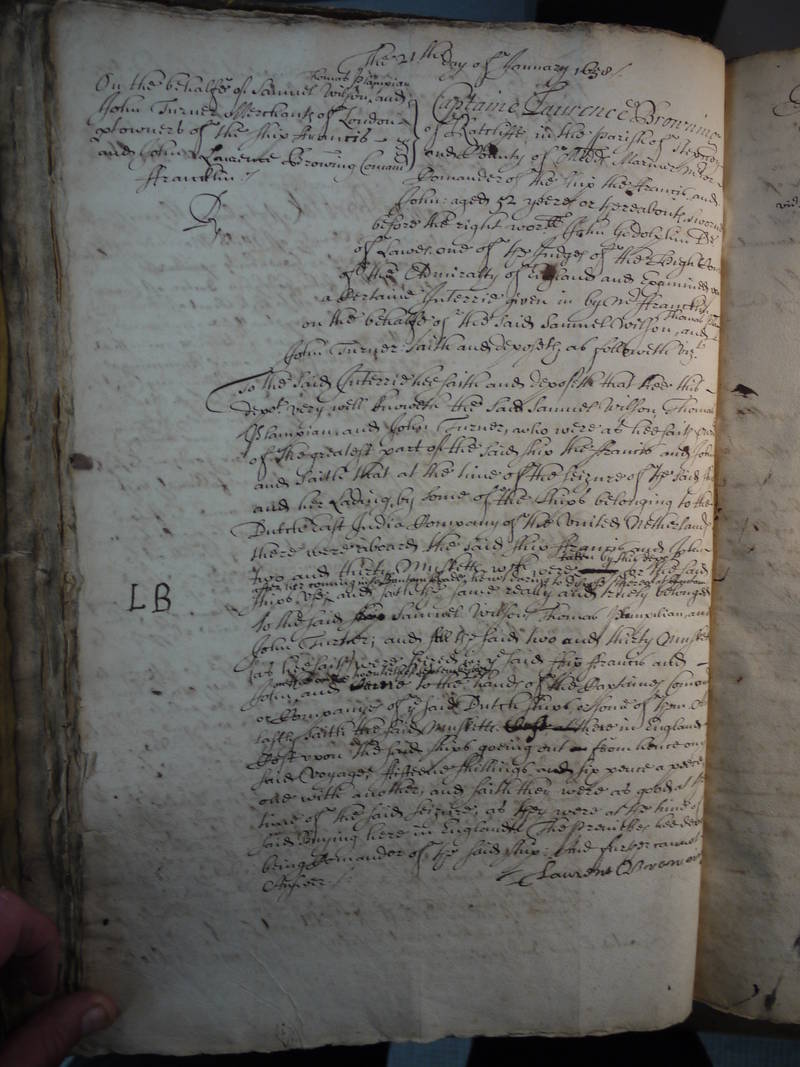 The 21th day of January 1658/.
On the behalfe of Samuel Wilson, Thomas Plampian and
John Turner Merchants of London
owners of the ship Francis
and John Laurence Browning Comand
ffrancklin./
Captaine Laurence Browning
of Ratcliffe in the parish of Stepney
and County of Middx Mariner
Comander of the ship the ffrancis and
John: aged 52 yeeres or thereabouts sworne
before the right worll John Godolphin Dr
of Lawes, one of the Judges of the high
of the Admiralty of England and Examined
a Certaine Interrie given in by Mr ffrancklin
on the behalfe of the said Samuel Wilson, Thomas and
John Turner saith and deposeth as followeth vizt
To the said Interrie hee saith and deposeth that hee this
depot very well knoweth the said Samuel Wilson, Thomas
Plampian, and John Turner, who were as hee saith
of the greatest part of the said ship the ffrancis and John
and saith that at the time of the seizure of the said
and her lading, by some of the ships belonging to the
Dutch East India Company of the United Netherlands
there were aboard the said ship ffrancis and John
two and thirty Musketts were taken by the said
after her coming into Bantam
ships and saith the same really and truely belonged
LB
to the said Samuel Wilson Thomas Plampian, and
John Turner; and saith the said two and thirty Muskets
(as hee saith) were seized in the said ship ffrancis and
John, and to the hands of the Captaines
or Company of the said Dutch ships or some of them
lastly saith the said Musketts there in England
Cost upon the said ships goeing out from hence on
said Voyage fifteene shillings and six pence a peece
one with another, and saith they were as good at the
time of the said seizure, as they were at the time of
said buying here in England. The premisses hee
being Comander of the said ship: And further cannot
Answer./
Laurence Browning